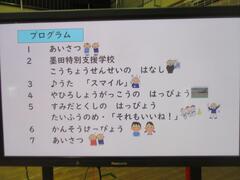 プログラム
1 あいさつ
2 墨田特別支援学校
こうちょうせんせいの はなし
3 ♪うた 「スマイル」
4 やひろしょうがっこうの はっぴょう
5 すみだとくしの はっぴょう
たいふうのめ・「それもいいね！」
6 かんそうはっぴょう
7 あいさつ
Panasonic